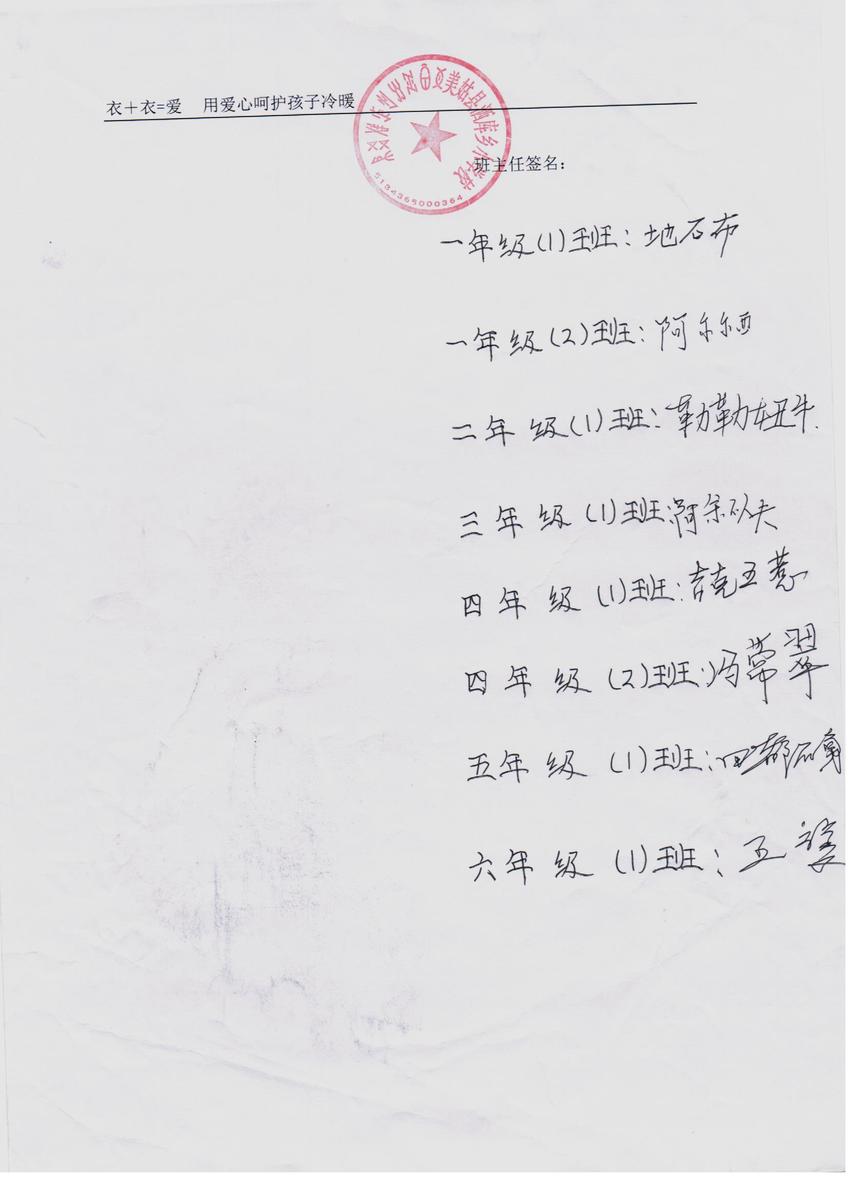 衣+衣=爱 用爱心呵护孩子冷暖
美姑县 库乡小学校
5134365000364
班主任签名：
一年级(1)班：地石布
一年级(2)班：阿尔西
二年级(1)班：勒勒妞牛
三年级(1)班：阿余
四年级(1)班：吉克五惹
四年级(2)班：冯蒂翠
五年级(1)班：
六年级(1)班：王